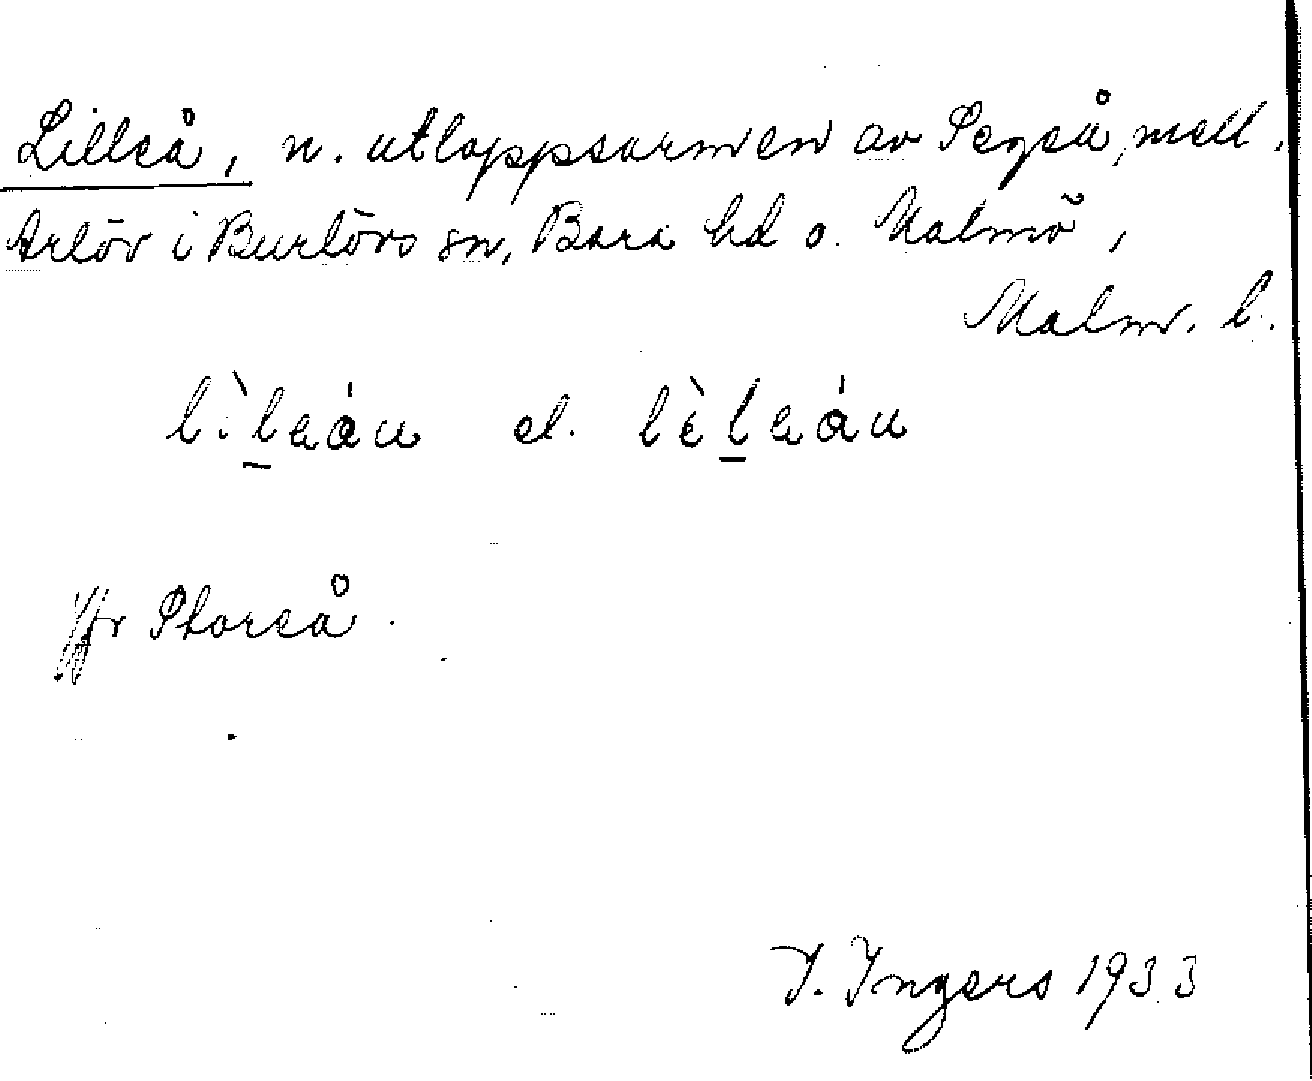 Lilleå, n. utloppsarmen av Segeå, mell.
Arlöv i Burlövs sn, Bara hd o. Malmö,
Malm. l.
lìleán el. lèleán
Jfr Storeå.
I. Ingers 1933